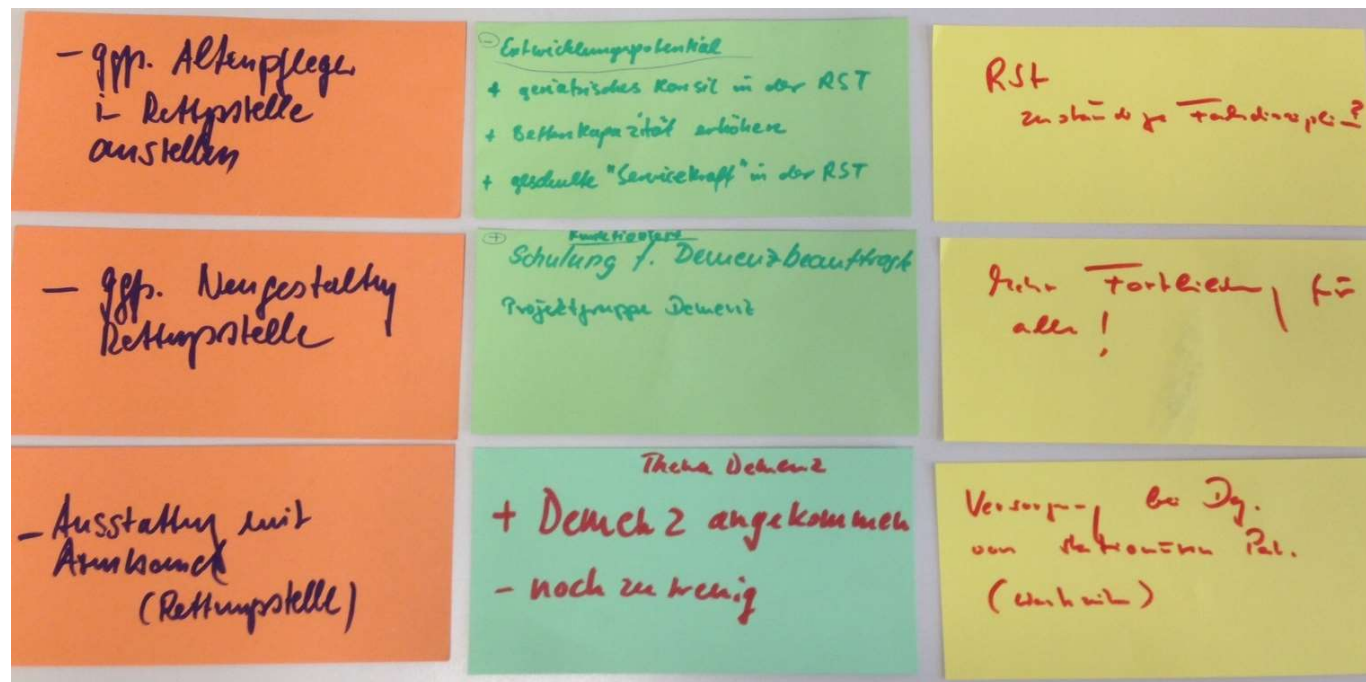 - ggf. Altenpfleger
i Rettgsstelle
anstellen
- ggf. Neugestaltung
Rettungsstelle
- Ausstattung mit
Armband
(Rettungsstelle)
- Entwicklungspotential
+ geriatrisches Konsil in der RST
+ Bettenkapazität erhöhen
+ geschulte "Servicekraft" in der RST
+ funktioniert
Schulung f. Demenzbeauftragte
Projektgruppe Demenz
Thema Demenz
+ Demenz angekommen
- noch zu wenig
RSt
zuständige Fachdisziplin?
Mehr Fortbildung für
alle!
Versorgung bei Dg.
von stationären Pat.